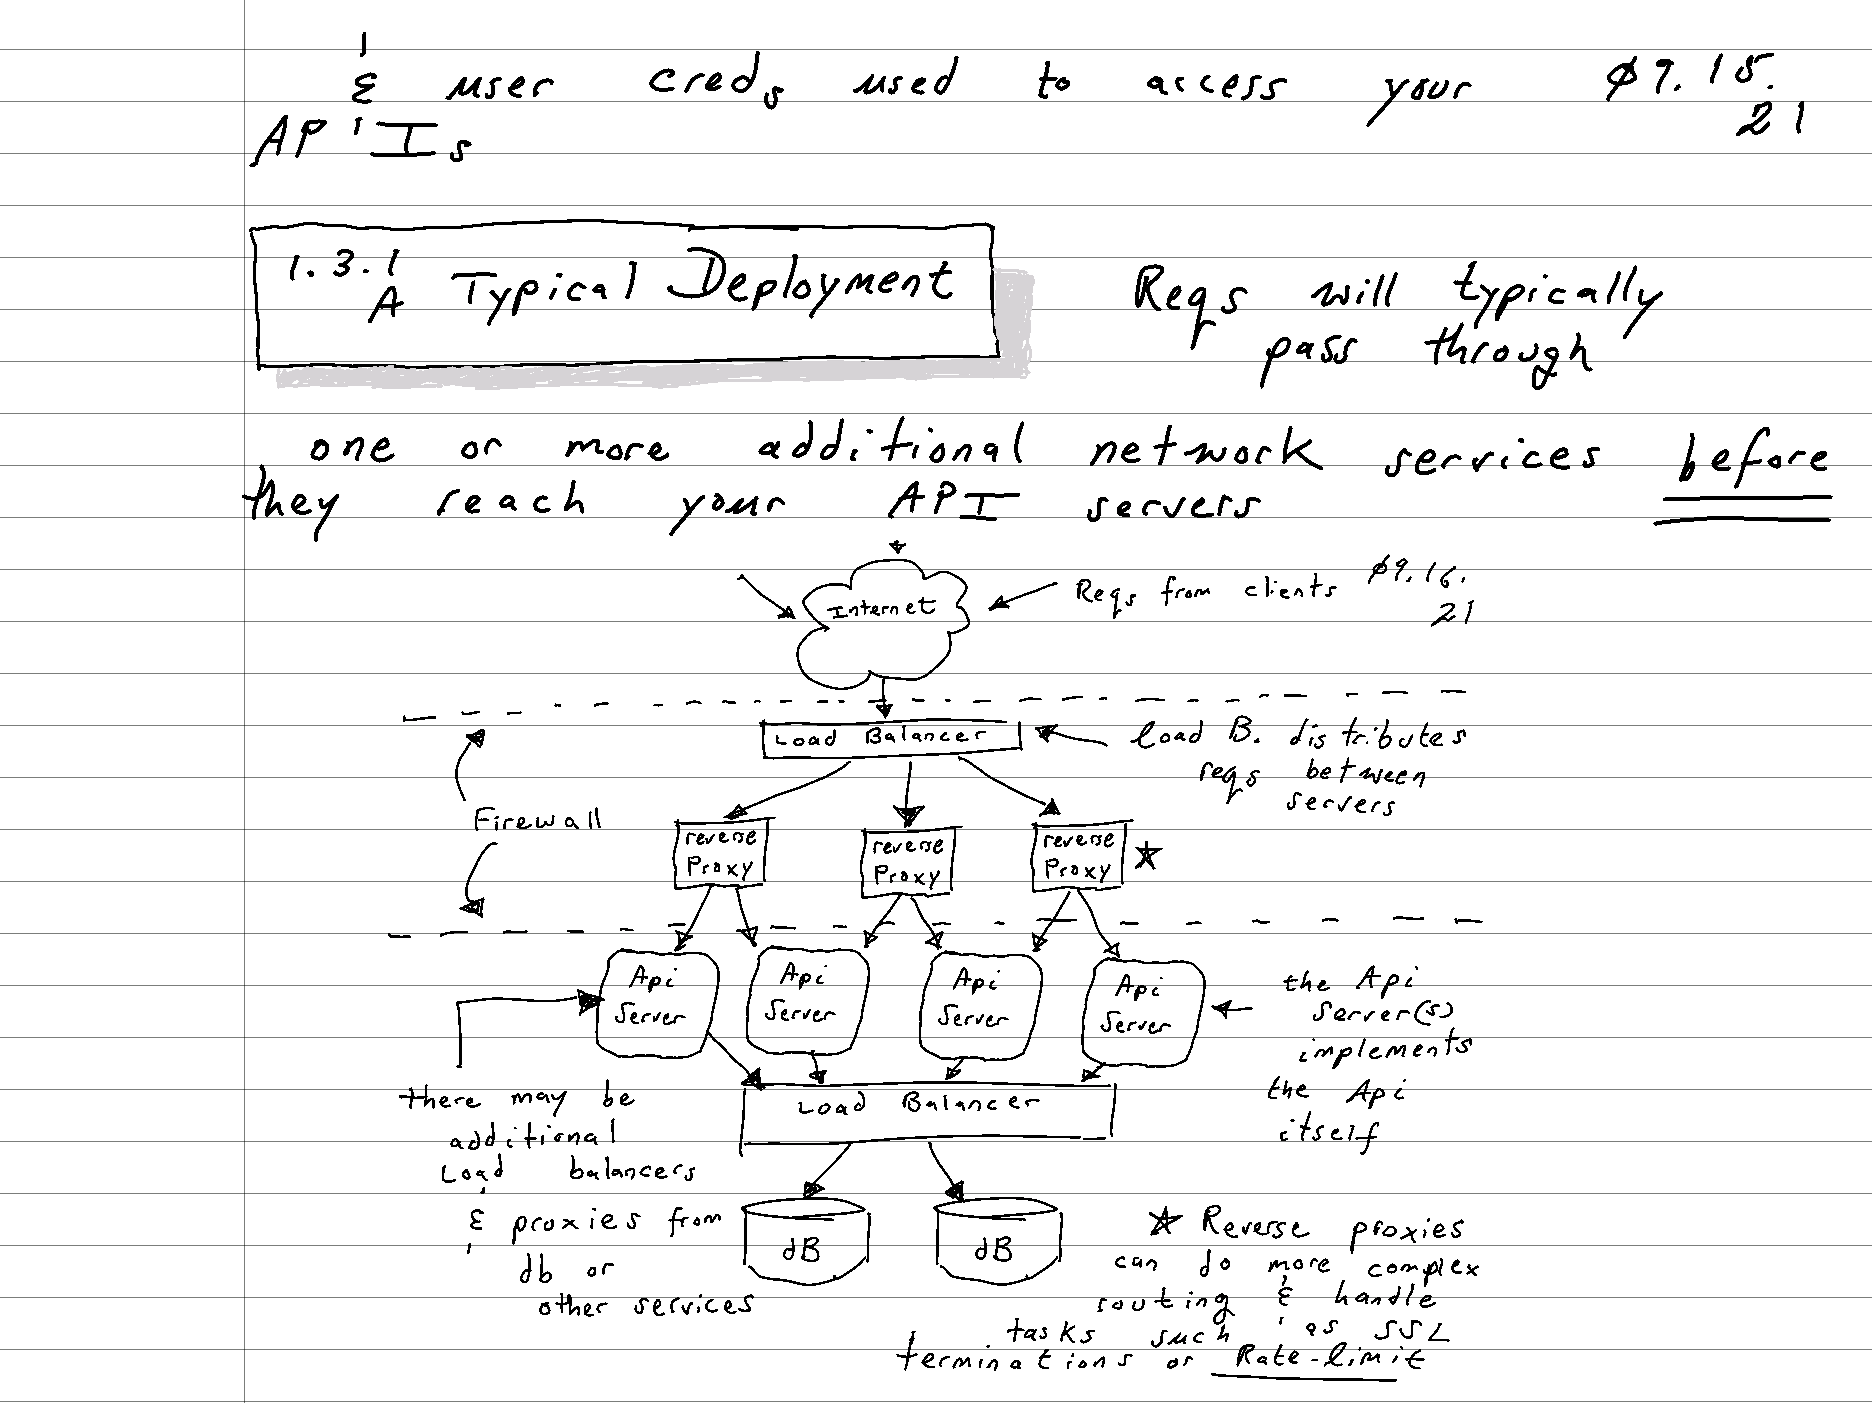 & user creds used to access your Ø9.15.
21
API's
1.3.1
A Typical Deployment
Reqs will typically
pass through
one or more additional network services before
they reach your API servers
Internet
Reqs from clients Ø9.16.
21
Load Balancer
load B. distributes
reqs between
servers
Firewall
reverse
Proxy
reverse
Proxy
reverse
Proxy
Api
Server
Api
Server
Api
Server
Api
Server
the Api
Server(s)
implements
the Api
itself
there may be
additional
Load balancers
& proxies from
db or
other services
Load Balancer
dB
dB
★ Reverse proxies
can do more complex
routing & handle
tasks such as SSL
terminations or Rate-limit